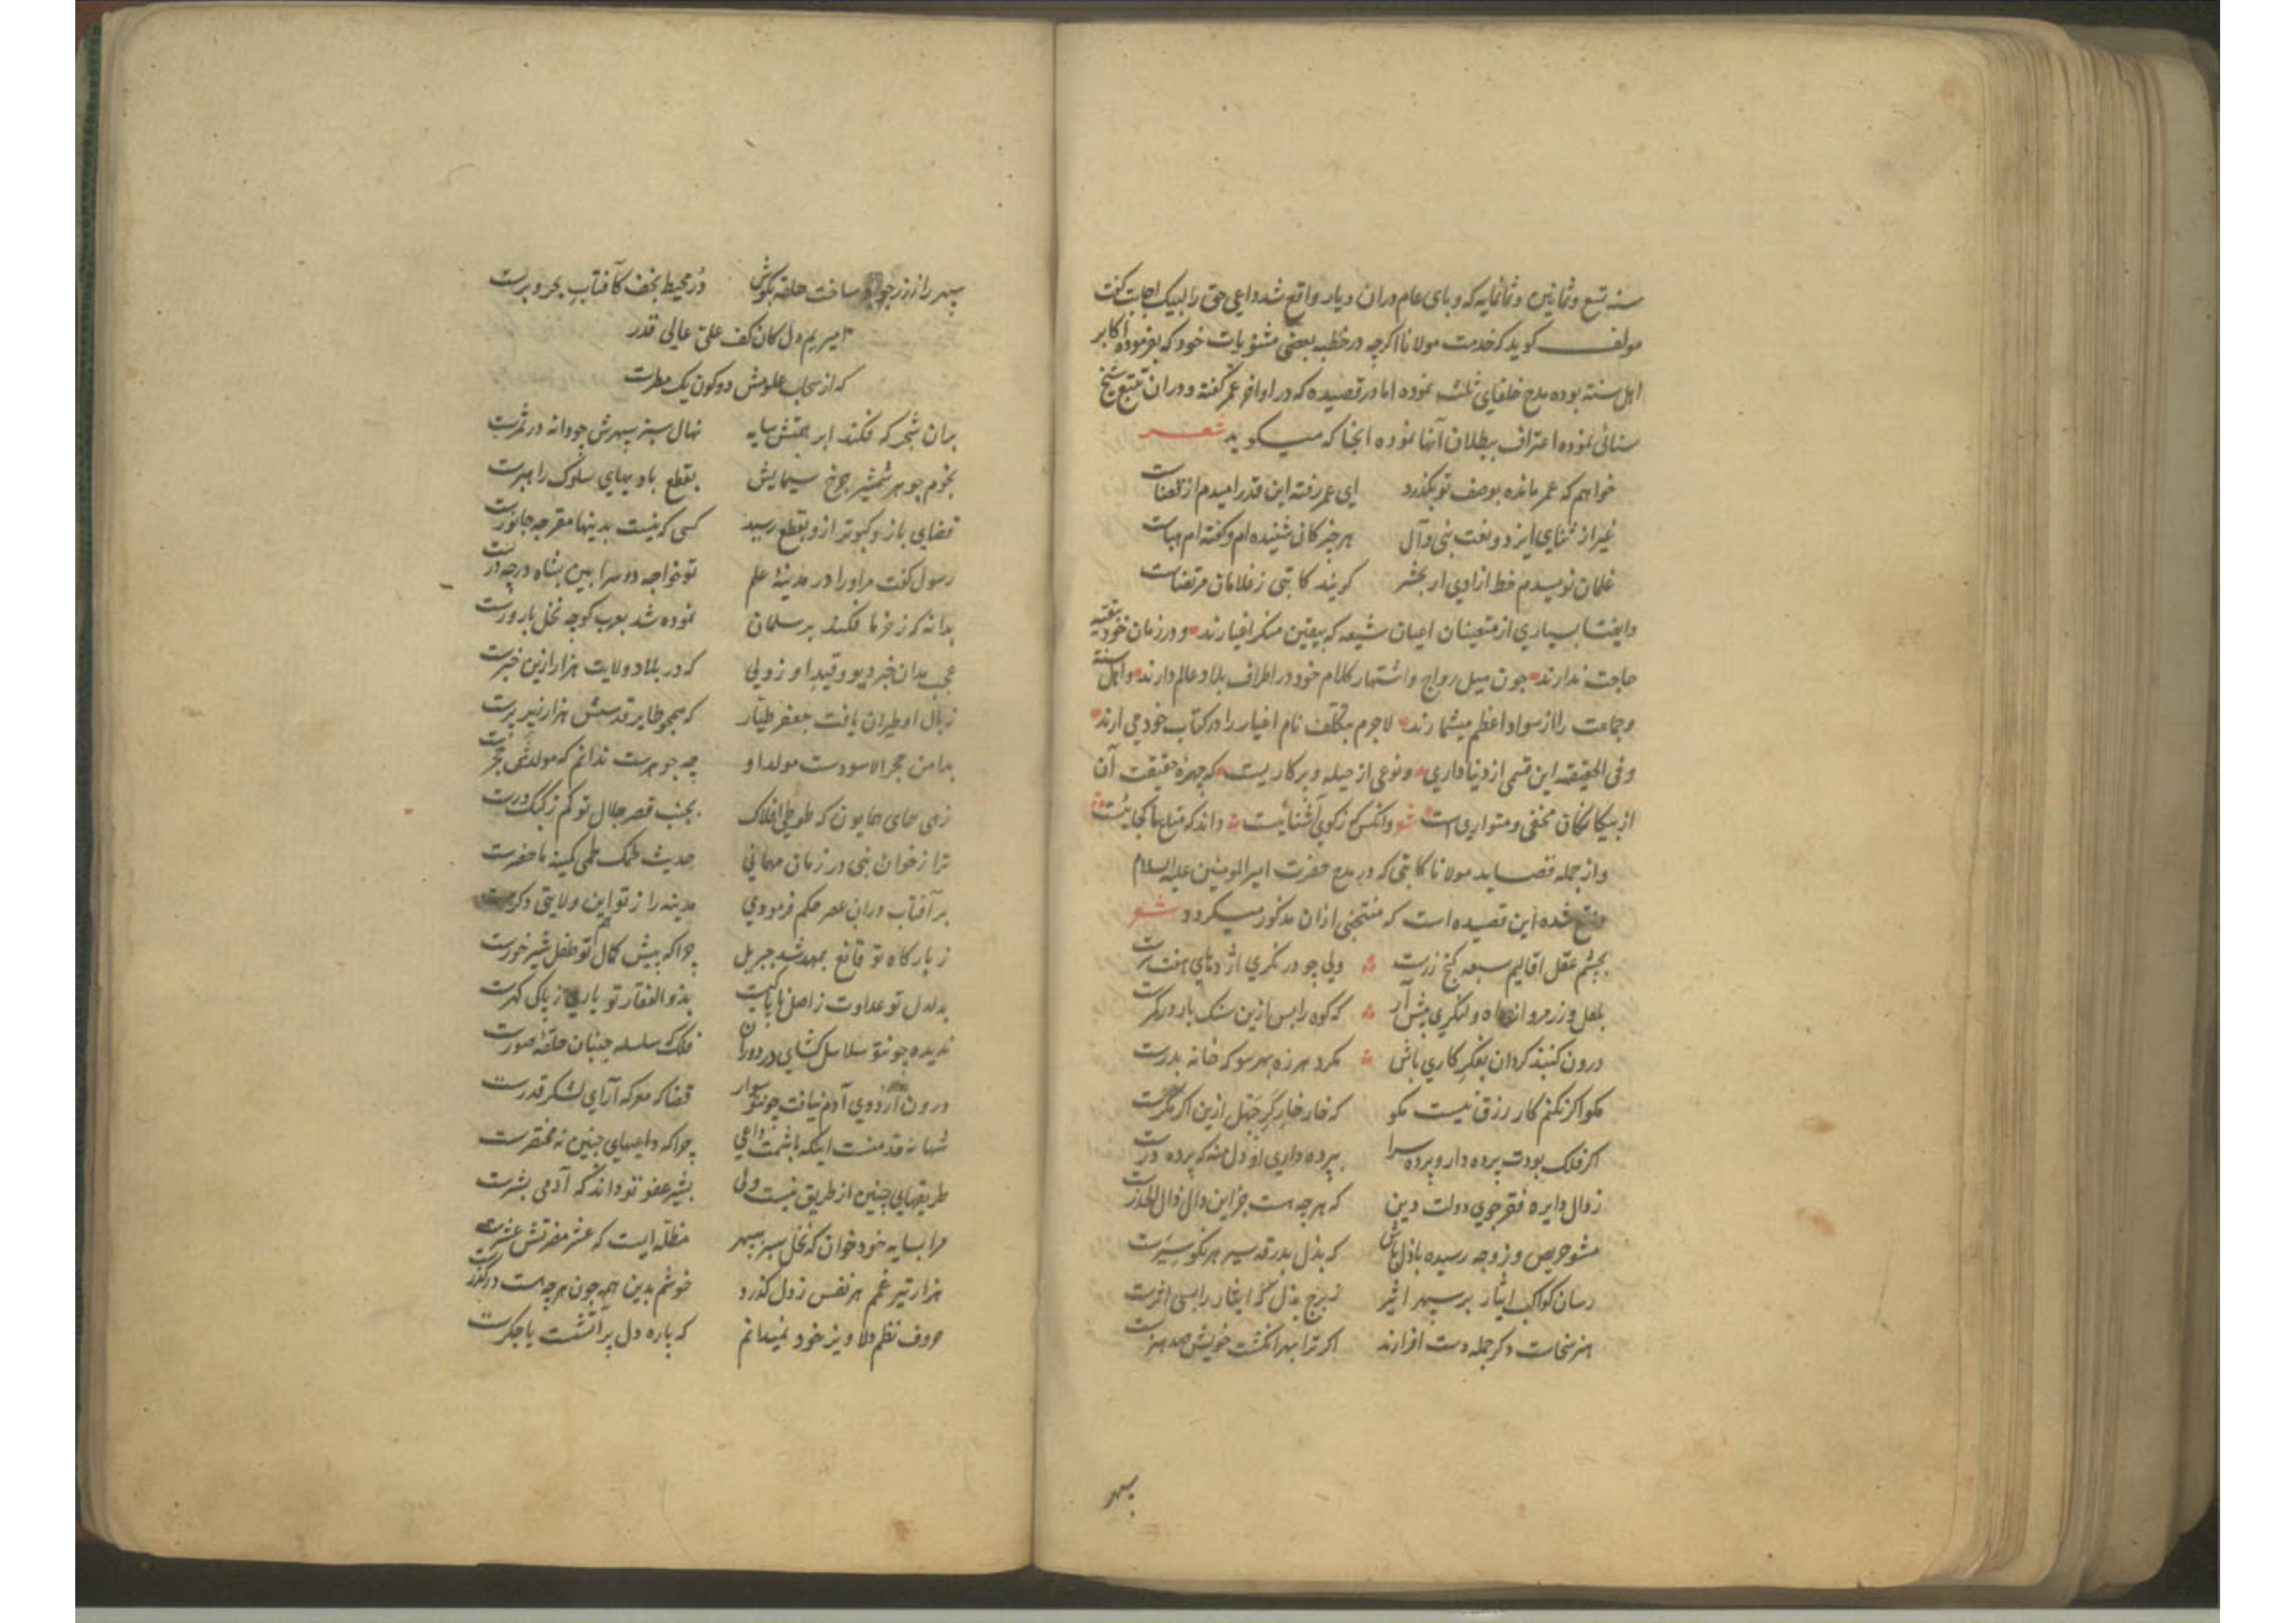 سنه تسع و ثمانین و ثمانمایه که وبای عام دران دیار واقع شد داعی حق را لبیک اجابت گفت
مولف کوید که خدمت مولانا اکرچه در خطب بعضی مثنویات خود که بفرموده اکابر
اهل سنته بوده مدح خلفای ثلث نموده اما در قصیده که در اواخر عمر گفته و دران تتبع شیخ
سنائی نموده اعتراف ببطلان آنها نموده انجا که میکوید شعر
خواهم که عمر مانده بوصف تو بکذرد ای عمر رفته این قدر امیدم از قضاست
غیر از ثنای ایزد و نعت نبی و آل هر چیز کان شنیده ام و کفته ام هباست
غلمان نویسدم خط ازادی ار بحشر کویند کاتبی ز غلامان مرتضاست
وایضا بسیاری از متعینان اعیان شیعه که بیقین منکر اغیارند و در زمان خود بتقیه
حاجت ندارند چون میل رواج و اشتهار کلام خود در اطراف بلاد عالم دارند و اهل سنته
و جماعت را از سواد اعظم میشمارند لاجرم بتکلف نام اغیار را در کتاب خود می ارند
و فی الحقیقه این قسمی از دنیاداری و نوعی از حیله و پرکاریست که چهره حقیقت آن
از بیکانکان مخفی و متواریست شعر وانکس که ز کوی آشنائیست داند که متاع ما کجائیست
و از جمله قصاید مولانا کاتبی که در مدح حضرت امیر المومنین علیه السلام
واقع شده این قصیده است که منتخبی ازان مذکور میکردد شعر
بچشم عقل اقالیم سبعه کنج زرست ولی چو در نکری اژدهای هفت سرست
بلعل و زر مرو از راه و لنکری پیش آر که کوه را بس ازین سنک بار در کمرست
درون کنبذ کردان بفکر کاری باش مکرد هرزه بهر سو که خانه بدرست
مکو اکر نکنم کار رزق نیست مکو که خار خار جهل ازین اکر مکرست
اکر فلک بودت پرده دار و پرده سرا بپرده داری او دل منه که پرده درست
ز دال دایره فقر جوی دولت دین که هر چه هست جز این دال ذال الحذرست
مشو حریص و ز وجه رسیده باذل باش که بذل بدرقه سیر هر نکو سیرست
رسان کواکب ایثار بر سپهر اثیر ز برج بذل که ایثار را بسی اثرست
هنر سخاست و کر جمله دست افزارند اکر ترا بهر انکشت خویش صد هنرست
سپهر
سپهر را از زر جود ساخت حلقه بکوش در محیط نجف کافتاب بحر و برست
امیر یم دل کان کف علی عالی قدر
که از سحاب علومش دو کون یک مطرست
بران شجر که فکند ابر همتش سایه نهال سبز سپهرش چو دانه در ثمرست
نجوم جوهر شمشیر چرخ سیمایش بقطع بادیهای سلوک راهبرست
قضای باز و کبوتر ازو بقطع رسید کسی که نیست بدینها مقر چه جانورست
رسول کفت مر اورا در مدینهٔ علم تو خواجه دو سرا بین بشاه در چه درست
بدانه که ز خرما فکند بر سلمان نموده شد بعرب کو چه نخل بارورست
عجب مدان خبر دیو و قید او ز ولی که در بلاد ولایت هزار ازین خبرست
ز بال او طیران یافت جعفر طیار که همچو طایر قدسیش هزار زیر پرست
بدامن حجر الاسودست مولد او چه جوهرست ندانم که مولدش حجرست
زهی همای همایون که طوطی افلاک بجنب قصر جلال تو کم ز کبک درست
ترا ز خوان نبی در زمان مهمانی حدیث لحمک لحمی کمینه ما حضرست
بر آفتاب دران عصر حکم فرمودی مدینه را ز تو این ولایتی دکرست
ز بارکاه تو قانع بمهد شد جبریل چرا که پیش کمال تو طفل شیرخورست
بدلدل تو عداوت ز اصل ناپاکیست بذو الفقار تو یاری ز پاکی کهرست
ندیده چو تو سلاسل کشای در دوران فلک که سلسله جنبان حلقهٔ صورست
درون اردوی آدم نیافت چون تو سوار قضا که معرکه آرای لشکر قدرست
شها نه قد منست اینکه باشمت داعی چرا که داعیهای چنین نه مختصرست
طریقهای چنین از طریق نیست ولی بشیر عفو تو داند که آدمی بشرست
مرا بسایه خود خوان که نخل سبز سپهر مظله ایست که عشر مضرتش عشرست
هزار تیر غم هر نفس ز دل کذرد خوشم بدین همه چون هر چه هست در کذرست
حروف نظم دلاویز خود نمیدانم که پاره دل پر آتشست یا جکرست